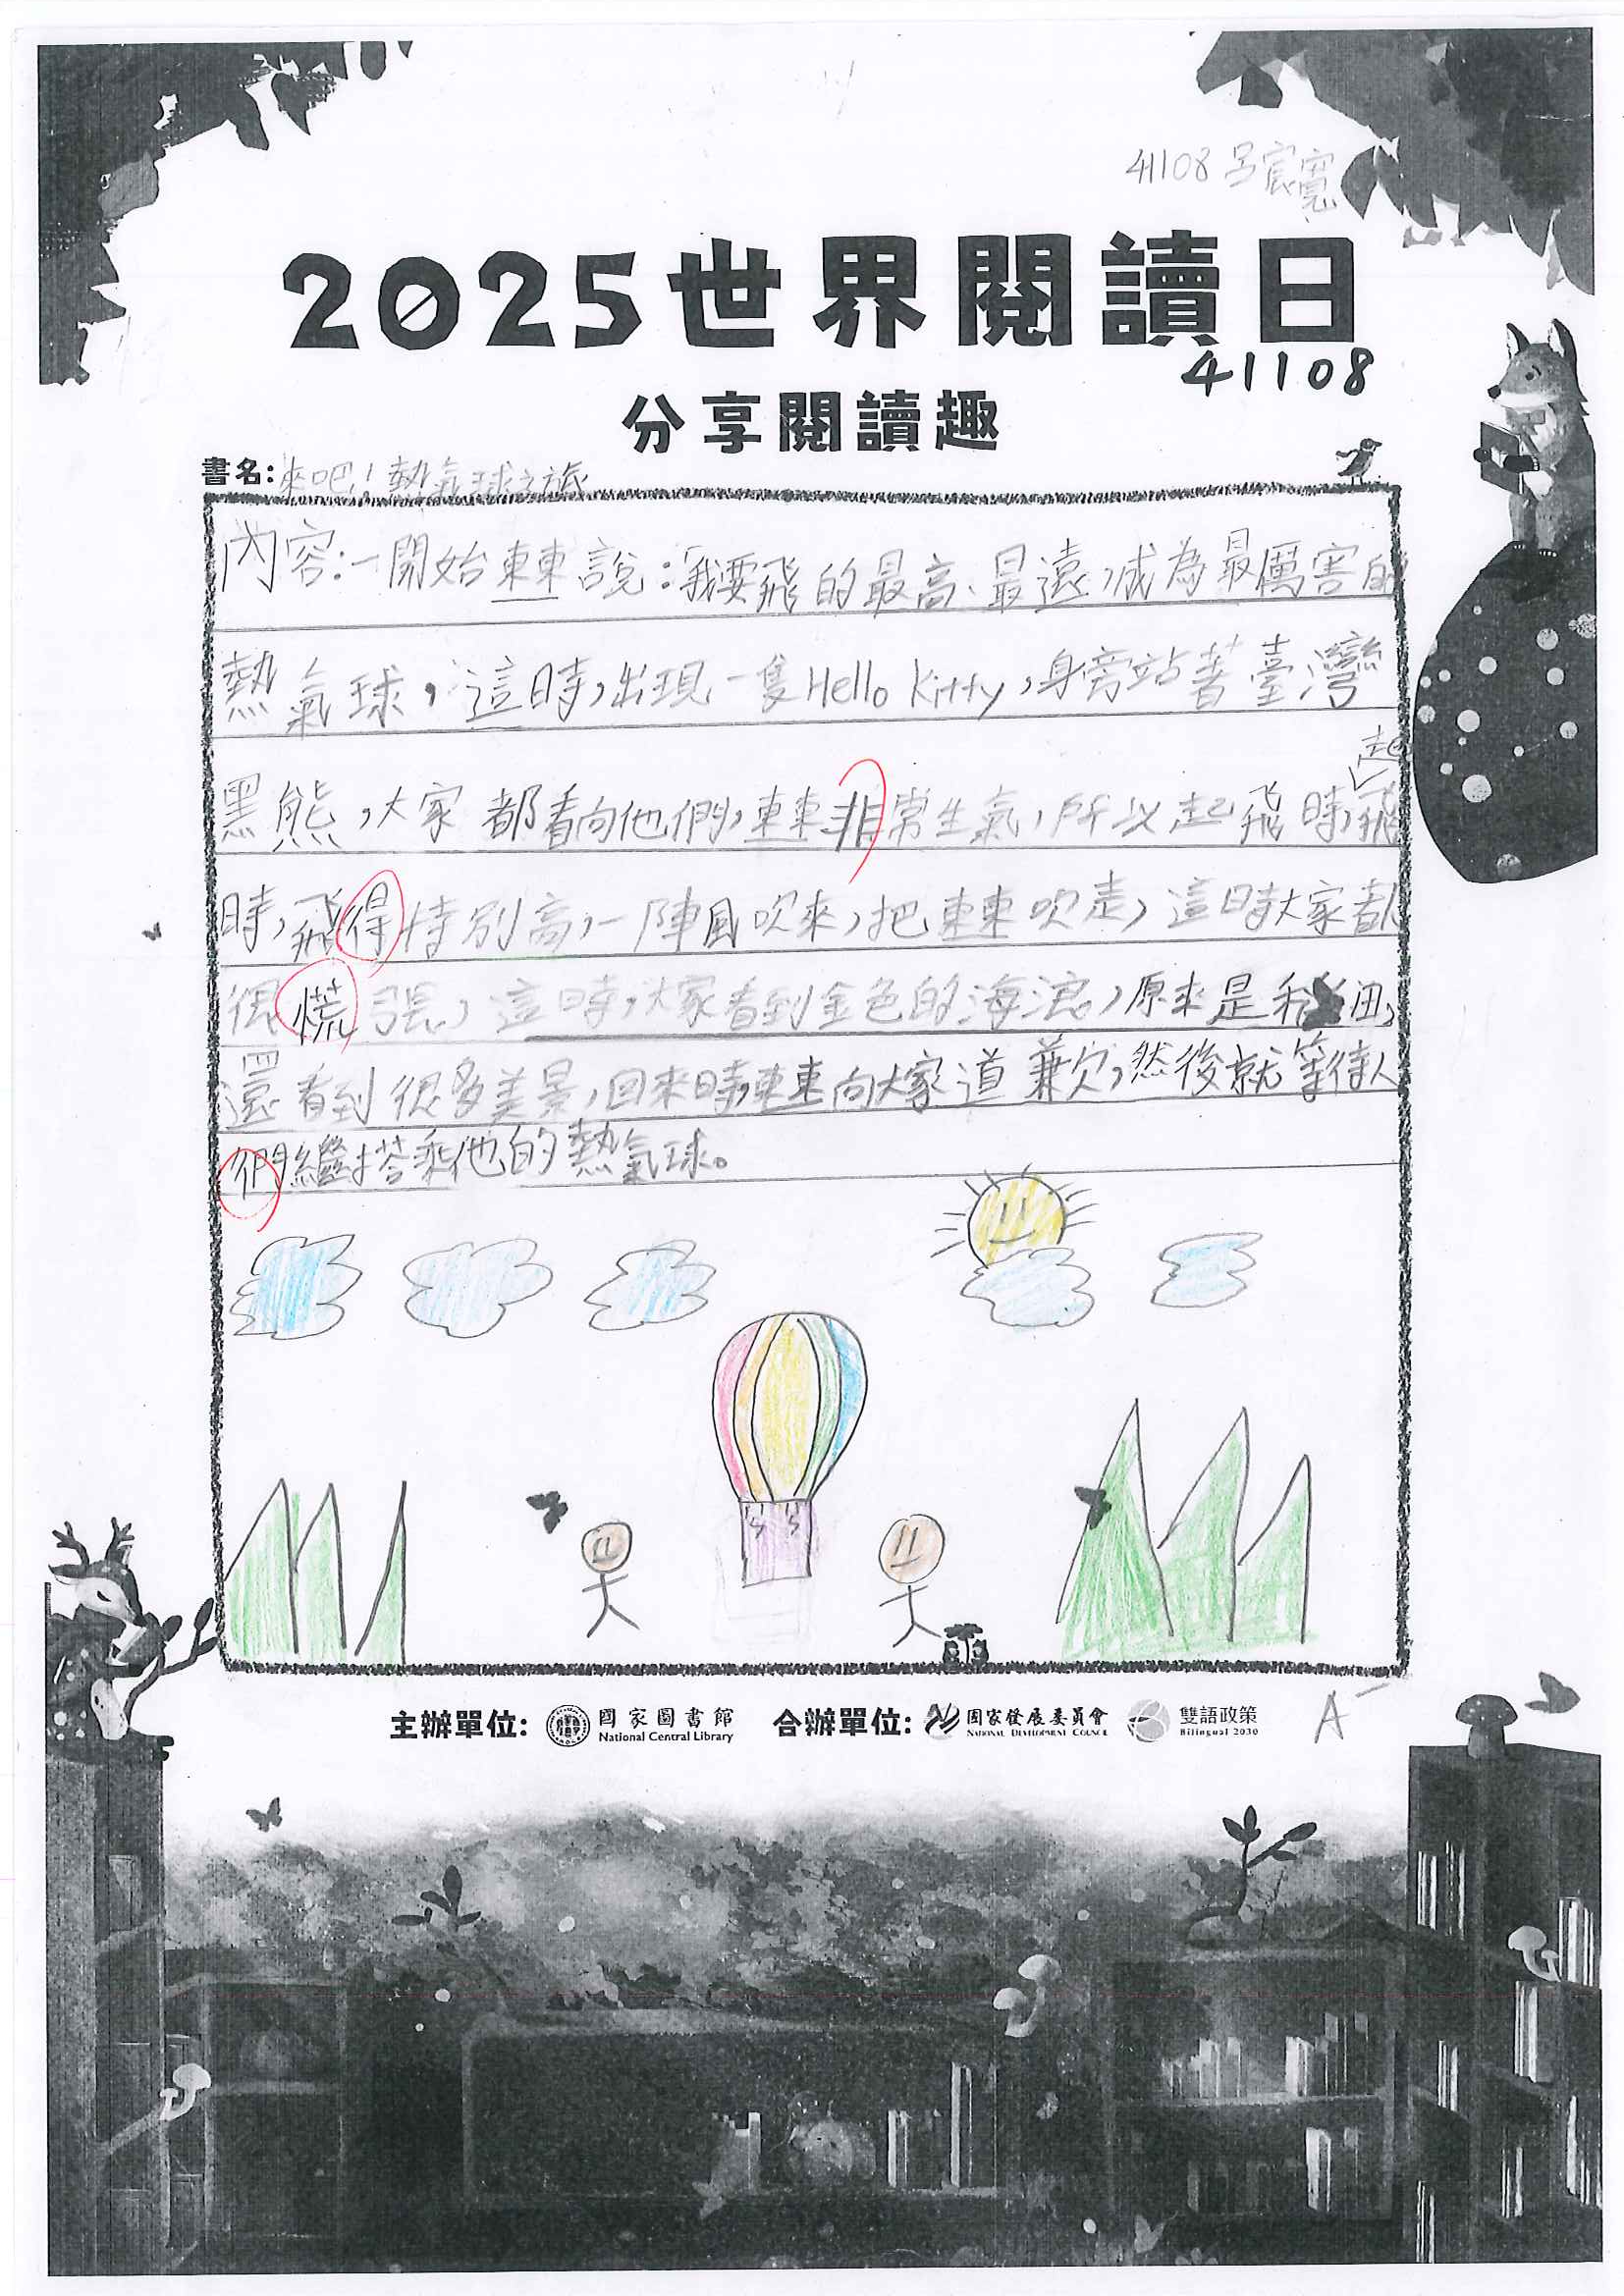 41108 呂宸寬
2025世界閱讀日
41108
分享閱讀趣
書名:來吧!熱氣球之旅
內容:一開始東東說:「我要飛的最高、最遠,成為最厲害的
熱氣球,這時,出現一隻Hello Kitty,身旁站著臺灣
起
黑熊,大家都看向他們,東東非常生氣,所以起飛時,飛
時,飛得特別高,一陣風吹來,把東東吹走,這時大家都
很慌張,這時,大家看到金色的海浪,原來是稻田,
還看到很多美景,回來時,東東向大家道兼欠,然後就等待人
們繼搭乘他的熱氣球。
A-
主辦單位: 國家圖書館 National Central Library 合辦單位: 國家發展委員會 NATIONAL DEVELOPMENT COUNCIL 雙語政策 Bilingual 2030